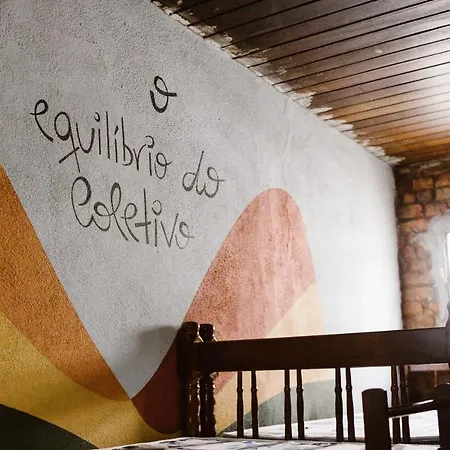 o
equilíbrio do
Coletivo